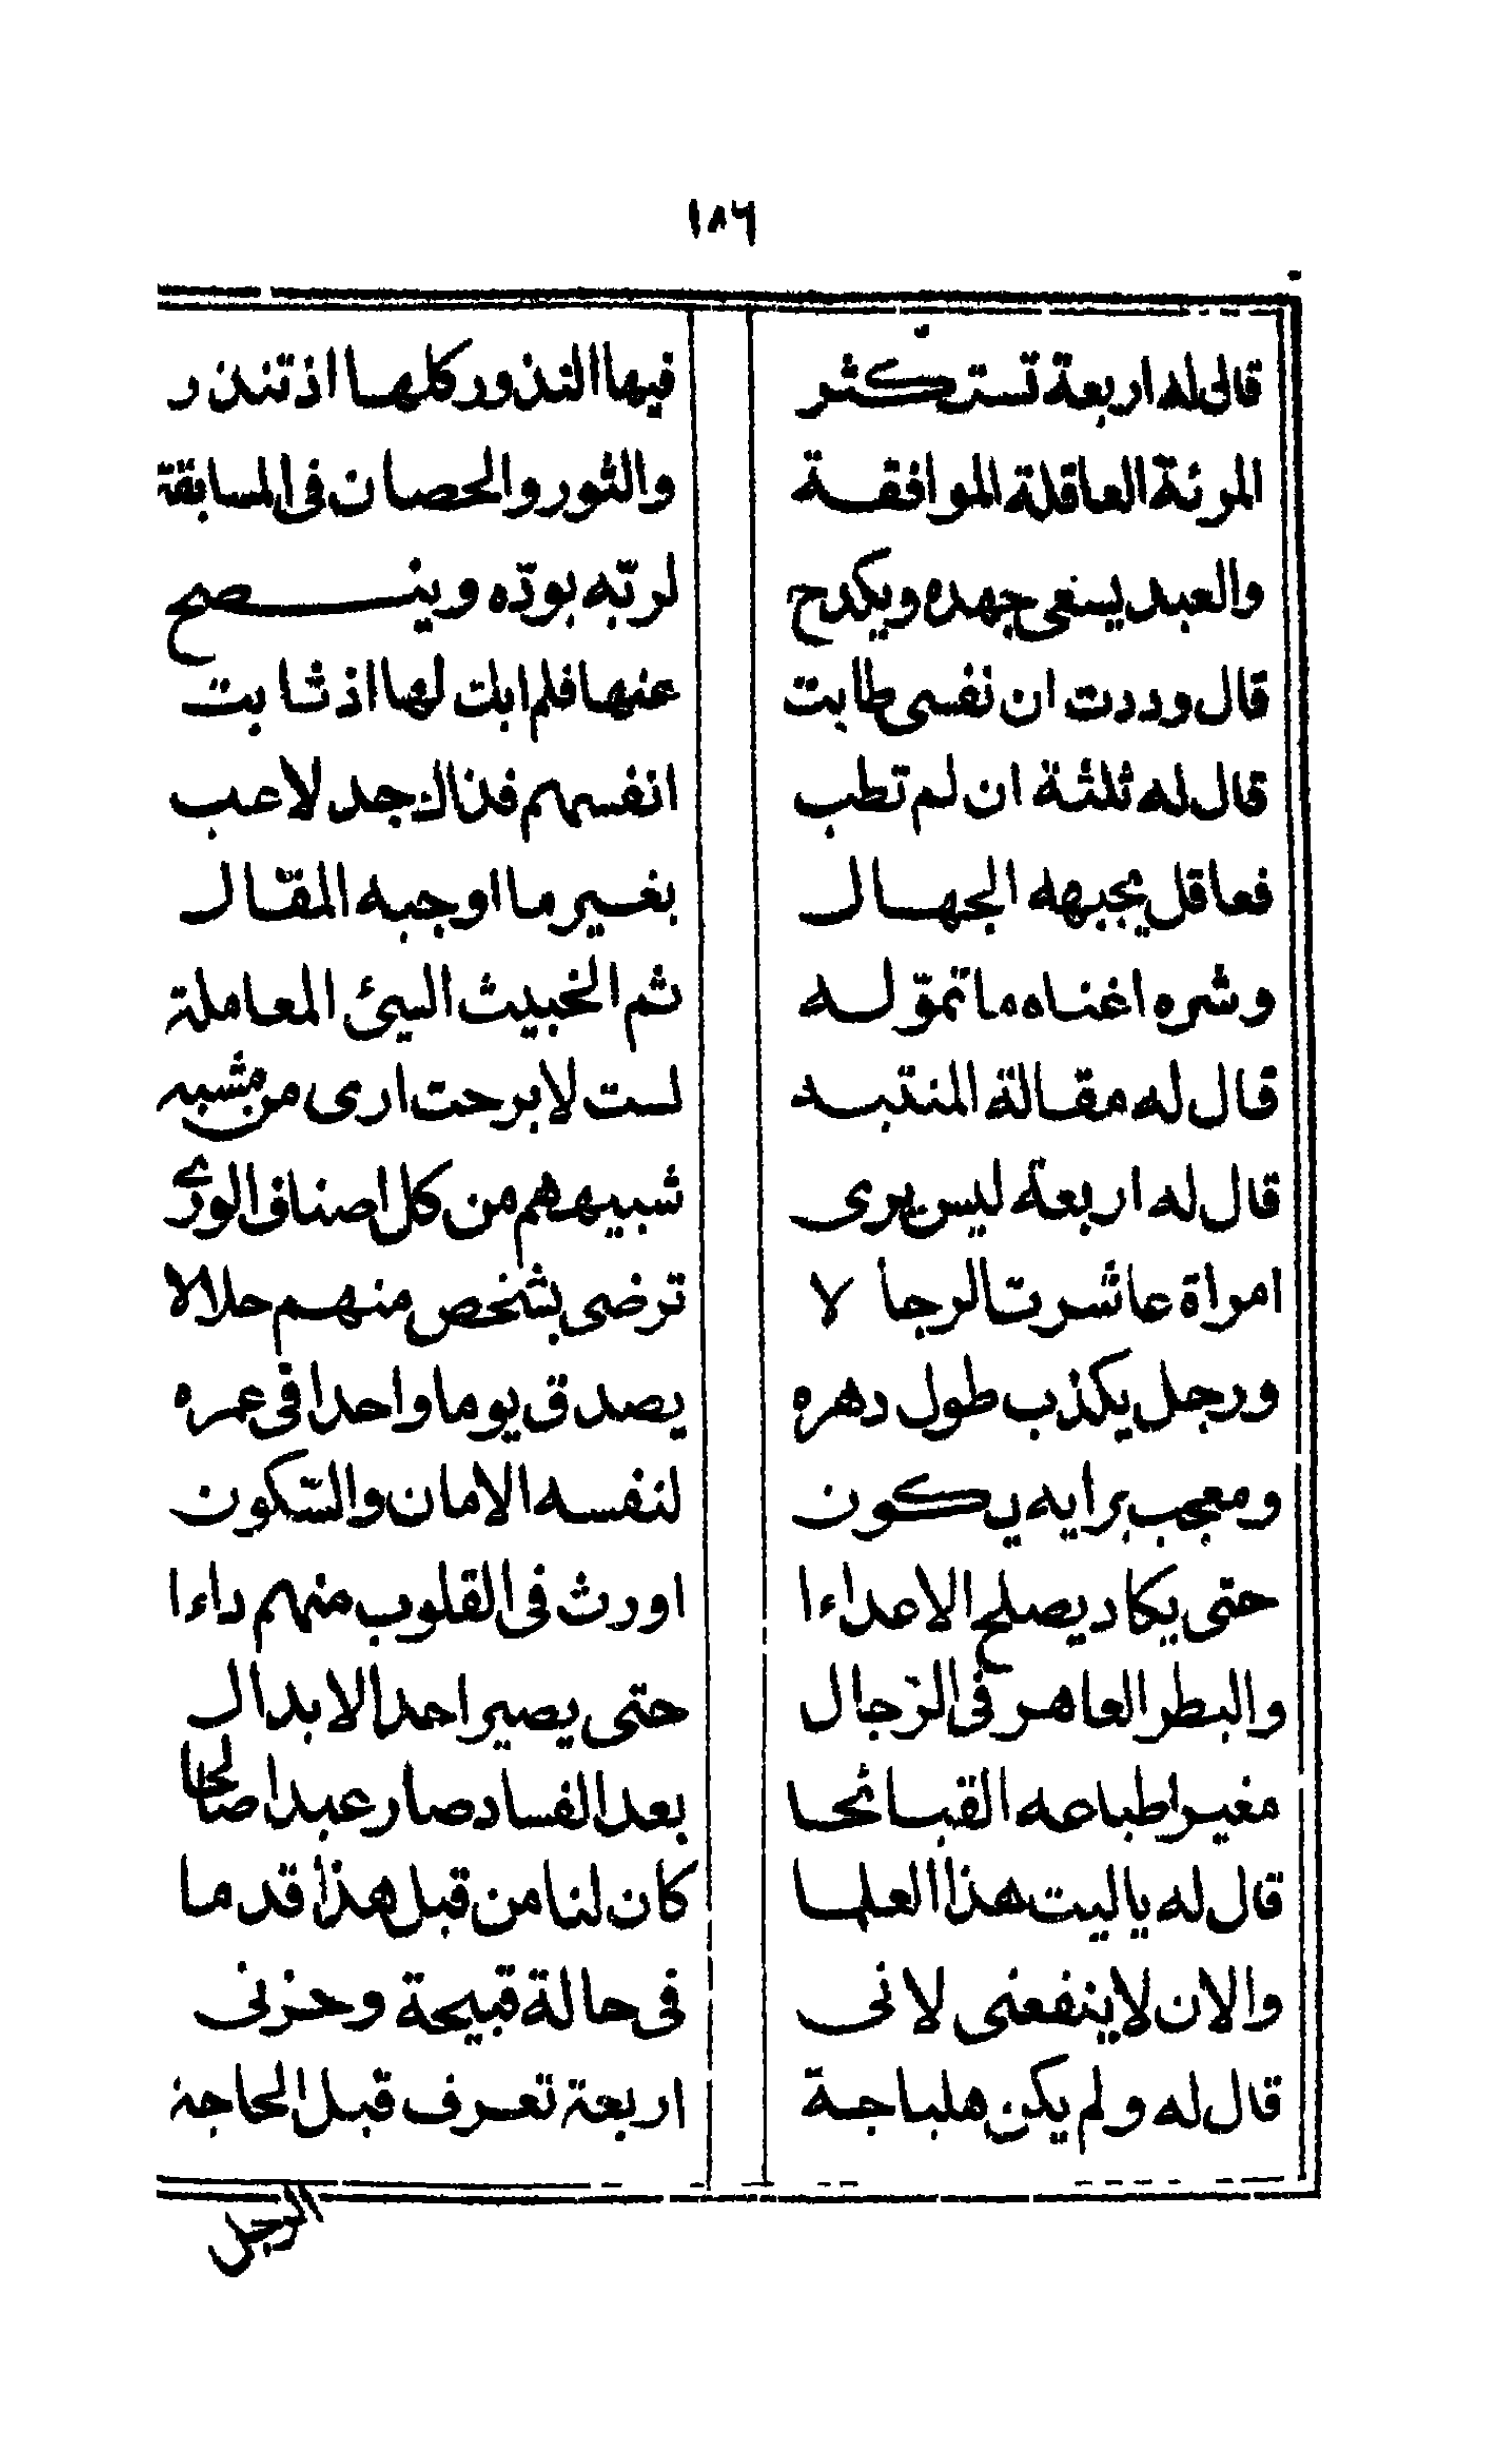 ١٨٦
قال له اربعة تستكثر فيها النذور كلها اذ تنذر
المرئة العاقلة الموافقة والثور والحصان فى المسابقة
والعبد يسعى جهده ويكدح لربّه بودّه وينصح
قال وددت ان نفسى طابت عنها فلم ابك لها اذ شابت
قال له ثلثة ان لم تطب انفسهم فذاك جد لا عب
فعاقل يجبهه الجهال بغير ما اوجبه المقال
وشره اغناه ما تموّله ثم الخبيث السيئ المعاملة
قال له مقالة المنتبه لست لا برحت ارى من مشبه
قال له اربعة ليس يرى شبيههم من كل اصناف الورى
امراة عاشرت الرجالا ترضى بشخص منهم حلالا
ورجل يكذب طول دهره يصدق يوما واحدا فى عمره
ومعجب برايه يكون لنفسه الامان والسّكون
حتى يكاد يصلح الاعداءا اورث فى القلوب منهم داءا
والبطر العاهر فى الرجال حتى يصير احد الابدال
مغيرا طباعه القبائحا بعد الفساد صار عبدا صالحا
قال له ياليت هذا العلما كان لنا من قبل هذا قدما
والان لا ينفعنى لانى فى حالة قبيحة وحزنى
قال له ولم يكن هلباجة اربعة تعرف قبل الحاجة
الرجل